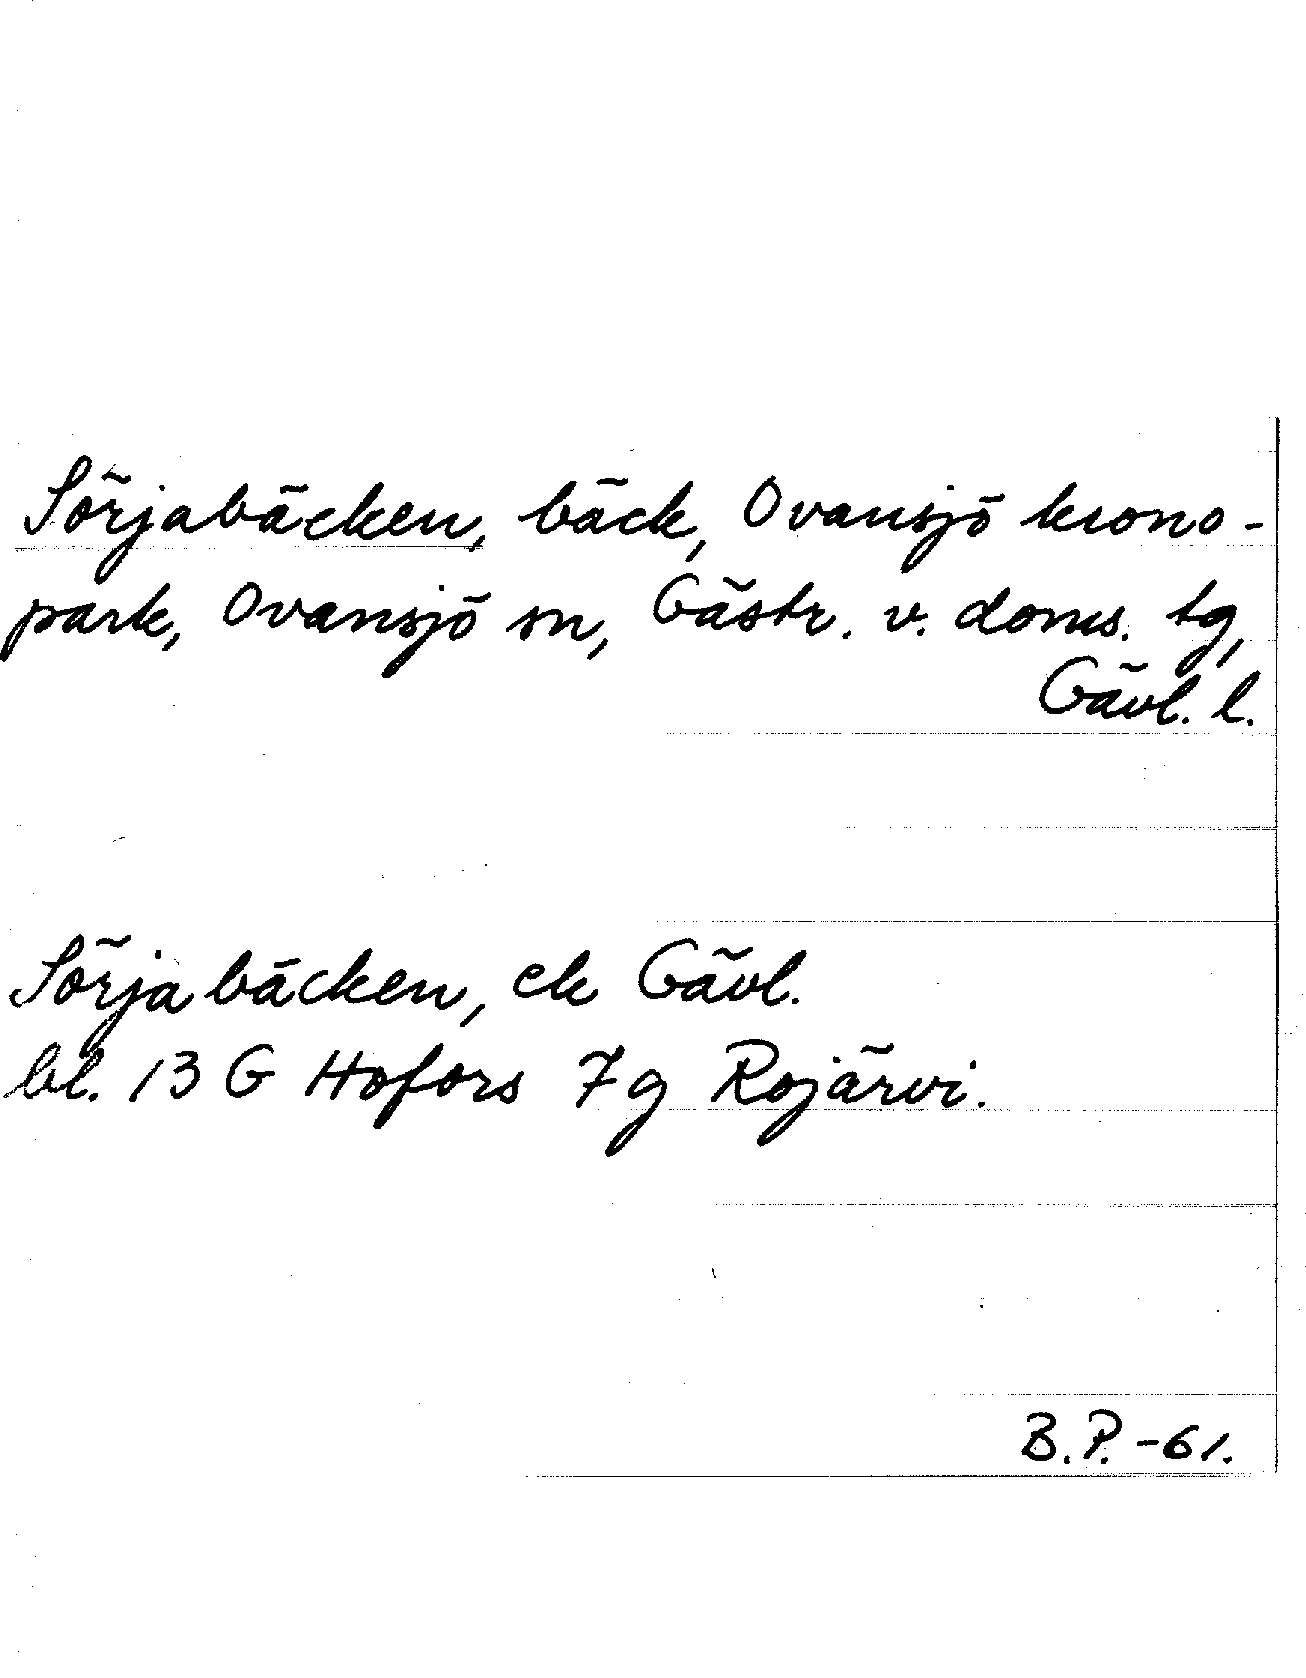 Sörjabäcken, bäck, Ovansjö krono-
park, Ovansjö sn, Gästr. v. doms. tg,
Gävl. l.
Sörjabäcken, ek Gävl.
bl. 13 G Hofors 7g Rojärvi.
B.P. -61.